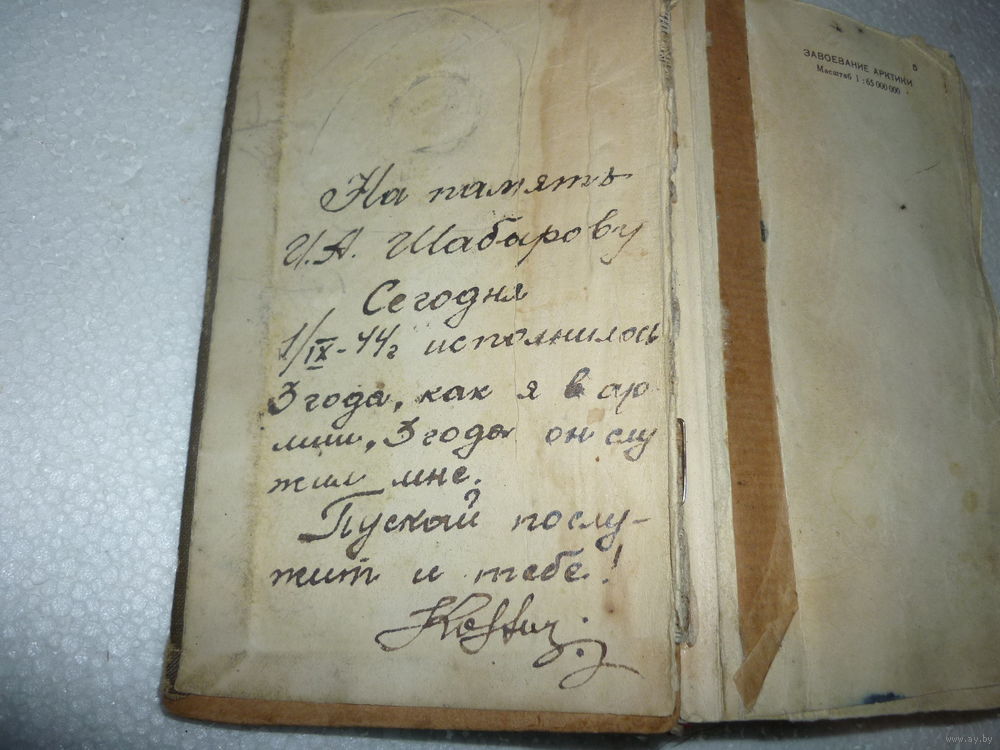 На память
И.А. Шабарову
Сегодня
1/IX-44г исполнилось
3 года, как я в ар
мии, 3 года он слу
жил мне.
Пускай послу-
жит и тебе!
ЗАВОЕВАНИЕ АРКТИКИ
5
Масштаб 1 : 65 000 000
www.ay.by